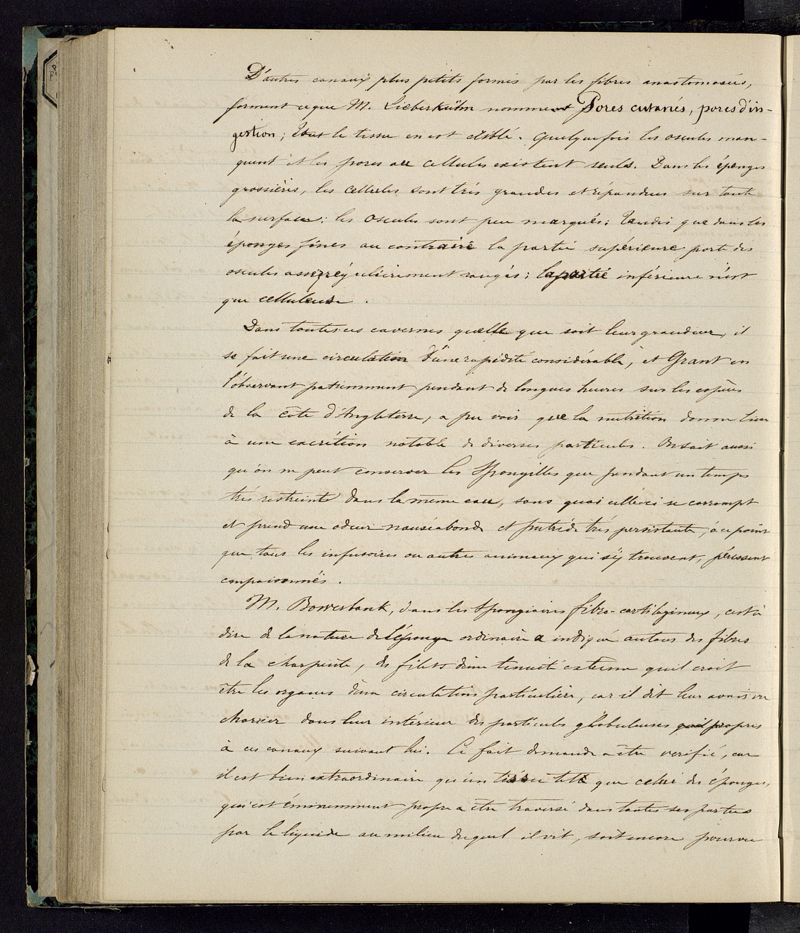 D'autres canaux plus petits formés par les fibres anastomosées,
forment ce que M. Lieberkühn nomment Pores cutanés, pores d'in-
gestion; tout le tissu en est criblé. Quelquefois les oscules man-
quent et les pores ou cellules existent seuls. Dans les éponges
grossières, les cellules sont très grandes et répandues sur toute
la surface; les oscules sont peu marqués; tandis que dans les
éponges fines au contraire la partie supérieure porte des
oscules assez régulièrement rangés; la partie inférieure n'est
que celluleuse.
Dans toutes ces cavernes quelle que soit leur grandeur, il
se fait une circulation d'une rapidité considérable, et Grant en
l'observant patiemment pendant de longues heures sur les espèces
de la côte d'Angleterre, a pu voir que la nutrition donne lieu
à une excrétion notable de diverses particules. On sait aussi
qu'on ne peut conserver les Spongilles que pendant un temps
très restreint dans la même eau, sans quoi celle-ci se corrompt
et prend une odeur nauséabonde et putride très persistante, à ce point
que tous les infusoires ou autres animaux qui s'y trouvent, périssent
empoisonnés.
M. Bowerbank, dans les Spongiaires fibro-cartilagineux, c'est à
dire de la nature de l'éponge ordinaire a indiqué autour des fibres
de la charpente, des filets d'une tenuité extrême qu'il croit
être les organes d'une circulation particulière, car il dit leur avoir vu
charrier dans leur intérieur des particules globuleuses propres
à ces canaux suivant lui. Ce fait demande a être verifié, car
il est bien extraordinaire qu'un tissu tel que celui des éponges,
qui est éminemment propre a être traversé dans toutes ses parties
par le liquide au milieu duquel il vit, soit encore pourvu